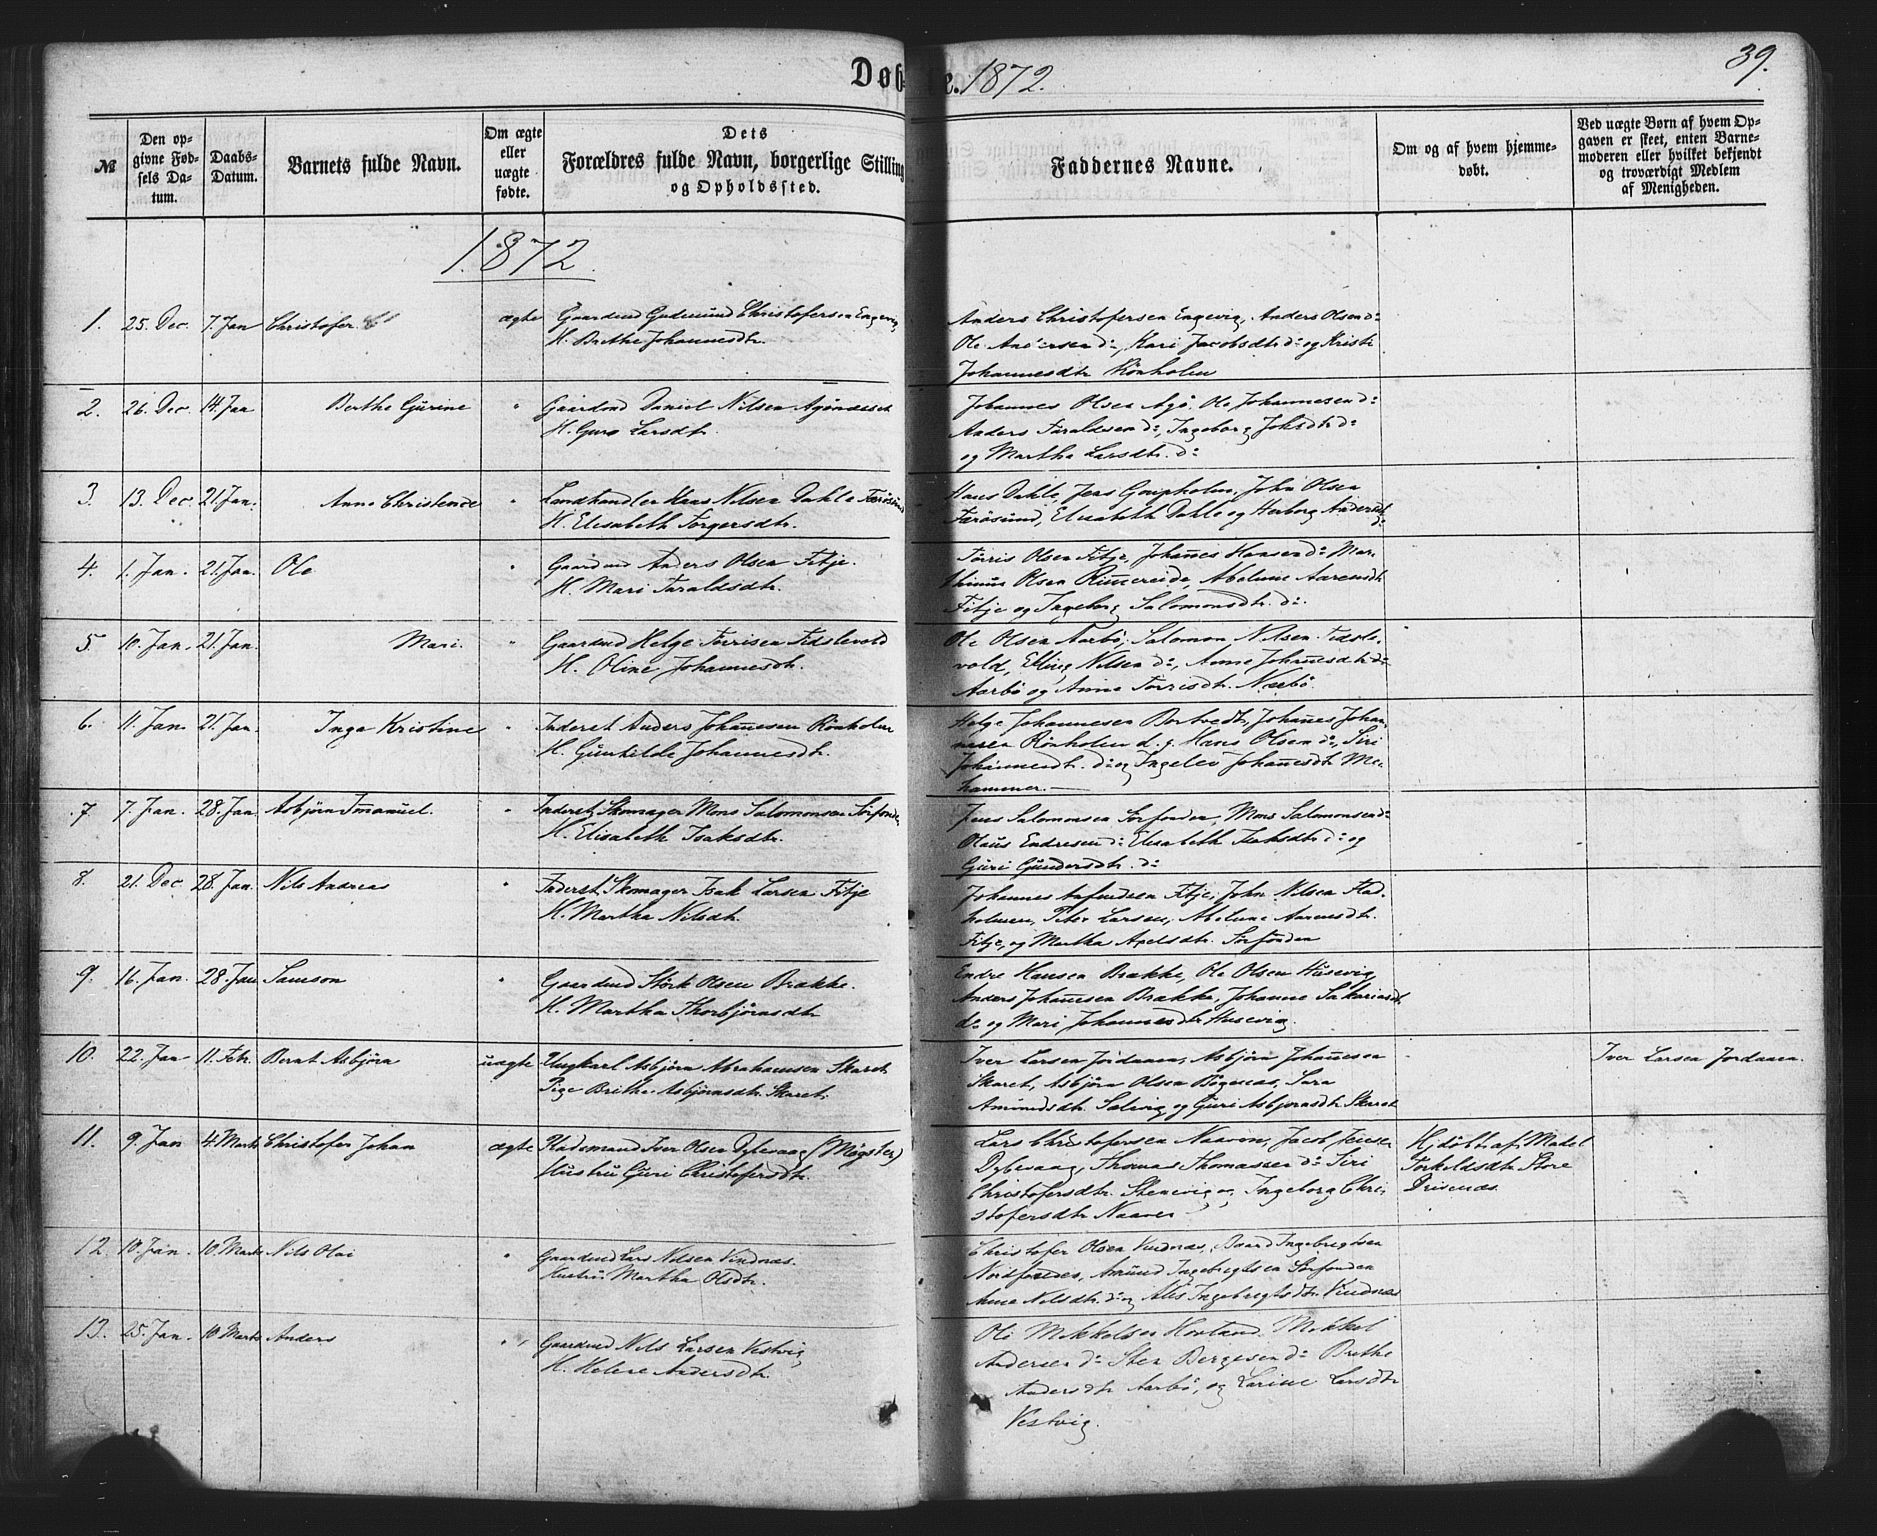 39.
Døbte. 1872.
№
Den opgivne Fødsels Datum.
Daabs-Datum.
Barnets fulde Navn.
Om ægte eller uægte fødte.
Dets Forældres fulde Navn, borgerlige Stilling og Opholdssted.
Faddernes Navne.
Om og af hvem hjemmedøbt.
Ved uægte Børn af hvem Opgaven er skeet, enten Barnemoderen eller hvilket bekjendt og troværdigt Medlem af Menigheden.
1872.
1. 25. Dec. 7. Jan Christofer ægte Gaardmd Gudmund Christofersen Engevig
H. Brethe Johannesdtr.
Anders Christofersen Engevig, Anders Olsen do
Ole Andersen do, Kari Jacobsdtr do og Kristi
Johannesdtr Rönholm
2. 26. Dec. 14. Jan Berthe Gurine " Gaardmd Daniel Nilsen Agönæsset
H. Guro Larsdtr.
Johannes Olsen Agö, Ole Johannesen do
Anders Taraldsen do, Ingeborg Johsdtr do
og Martha Larsdtr. do
3. 13. Dec. 21. Jan. Anne Christense " Landhandler Hans Nilsen Dahle Færösund
H. Elisabeth Torgersdtr.
Hans Dahle, Jens Goupholm, John Olsen
Færösund, Elisabeth Dahle og Herborg Andersdtr
do
4. 1. Jan. 21. Jan. Ole " Gaardmd Anders Olsen Fitje.
H. Mari Taraldsdtr.
Torris Olsen Fitje, Johannes Hansen do Mar-
thinus Olsen Rimereide, Abelune Aarensdtr
Fitje og Ingeborg Salomonsdtr. do.
5. 10. Jan. 21. Jan. Mari. " Gaardmd Helge Torrisen Tidslevold
H. Oline Johannesdtr.
Ole Olsen Aarbö, Salomon Nilsen Tidsle-
vold, Elling Nilsen do, Anne Johannesdtr do
Aarbö og Anna Torrisdtr. Nærbö.
6. 11. Jan. 21. Jan. Inga Kristine " Inderst Anders Johannesen Rönholm
H. Gunhilde Johannesdtr.
Helge Johannesen Bortvedt, Johannes Johan-
nesen Rönholm d. y. Hans Olsen do, Siri
Johannesdtr. do og Ingelev Johannesdtr Me-
hammer.
7. 7. Jan. 28. Jan. Asbjörn Imanuel. " Inderst, Skomager Mons Salomonsen Sörfonden
H. Elisabeth Isaksdtr.
Jens Salomonsen Sörfonden, Mons Salomonsen do
Olaus Endresen do Elisabeth Isaksdtr do og
Guri Gundersdtr. do
8. 21. Dec. 28. Jan. Nils Andreas " Inderst, Skomager Isak Larsen Fitje
H. Martha Nilsdtr.
Johannes Fitje, John Nilsen
holmen, Peter Larsen, Abelune Aarensdtr.
Fitje, og Martha Axelsdtr. Sörfonden
9. 16. Jan. 28. Jan. Samson " Gaardmd Störk Olsen Brække.
H. Martha Thorbjörnsdtr
Endre Hansen Brække, Ole Olsen Husevig
Anders Johannesen Brække, Johanne Sakariasdtr.
do og Mari Johannesdtr Husevig.
10. 22. Jan 11. Febr. Bernt Asbjörn uægte Ungkarl Asbjörn Abrahamsen Skaret
Pige Brithe Asbjörnsdtr. Skaret.
Iver Larsen Jordaaen, Asbjörn Johannesen
Skaret, Asbjörn Olsen Bögenæs, Sara
Amundsdtr. Salvig og Guri Asbjörnsdtr. Skaret
Iver Larsen Jordaaen.
11. 9. Jan 4. Marts Christofer Johan ægte Pladsmand Iver Olsen Dybevaag (Mögster)
Hustru Guri Christofersdtr.
Lars Christofersen Naaven, Jacob Jensen
Dybevaag, Thomas Thomassen do Siri
Christofersdtr. Stenevig og Ingeborg Chri-
stofersdtr Naaven
Hjdöbt af Madel
Torkildsdtr. Store
Drivenæs.
12. 10. Jan. 10. Marts Nils Olai " Gaardmd Lars Nilsen Vindnæs.
Hustru Martha Olsdtr.
Christofer Olsen Vindnæs, Baard Ingebrigtsen
Nordfonden, Amund Ingebrigtsen Sörfonden
Anna Nilsdtr. do og Alis Ingebrigtsdtr. Vindnæs
13. 25. Jan. 10 Marts Anders " Gaardmd Nils Larsen Vestvig
H. Helene Andersdtr.
Ole Mikkelsen Hovland. Mikkel
Andersen do Sten Bergesen do Brethe
Andersdtr Aarbö, og Larine Larsdtr
Vestvig.